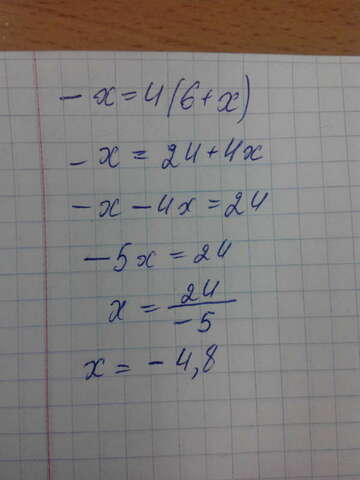 -x=4(6+x)
-x=24+4x
-x-4x=24
-5x=24
x=24/-5
x=-4,8